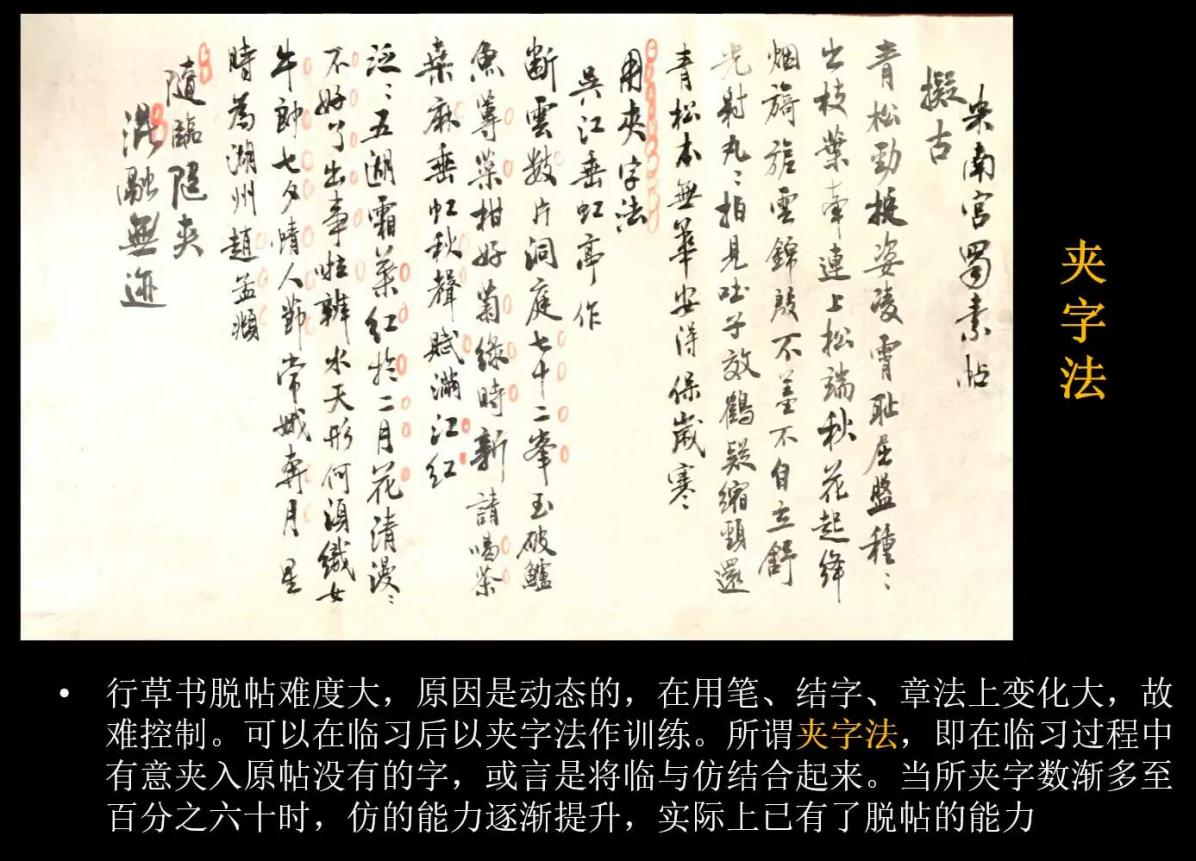 米南宮蜀素帖
擬古
青松勁挺姿凌霄恥屈盤種〻
出枝葉牽連上松端秋花起絳
烟旖旎雲錦殷不羞不自立舒
光射丸〻柏見吐子效鶴疑縮頸還
青松本無華安得保歲寒
用夾字法
吳江垂虹亭作
斷雲數片洞庭七十二峯玉破鱸
魚蓴菜柑好菊綠時新請喝茶
桑麻垂虹秋聲賦滿江紅
泛〻五湖霜葉紅於二月花清漫〻
不好了出事啦辨水天形何須織女
牛郎七夕情人節常娥奔月星
時為湖州趙孟頫
隨臨隨夾
混融無迹
夹字法
• 行草书脱帖难度大，原因是动态的，在用笔、结字、章法上变化大，故
难控制。可以在临习后以夹字法作训练。所谓夹字法，即在临习过程中
有意夹入原帖没有的字，或言是将临与仿结合起来。当所夹字数渐多至
百分之六十时，仿的能力逐渐提升，实际上已有了脱帖的能力